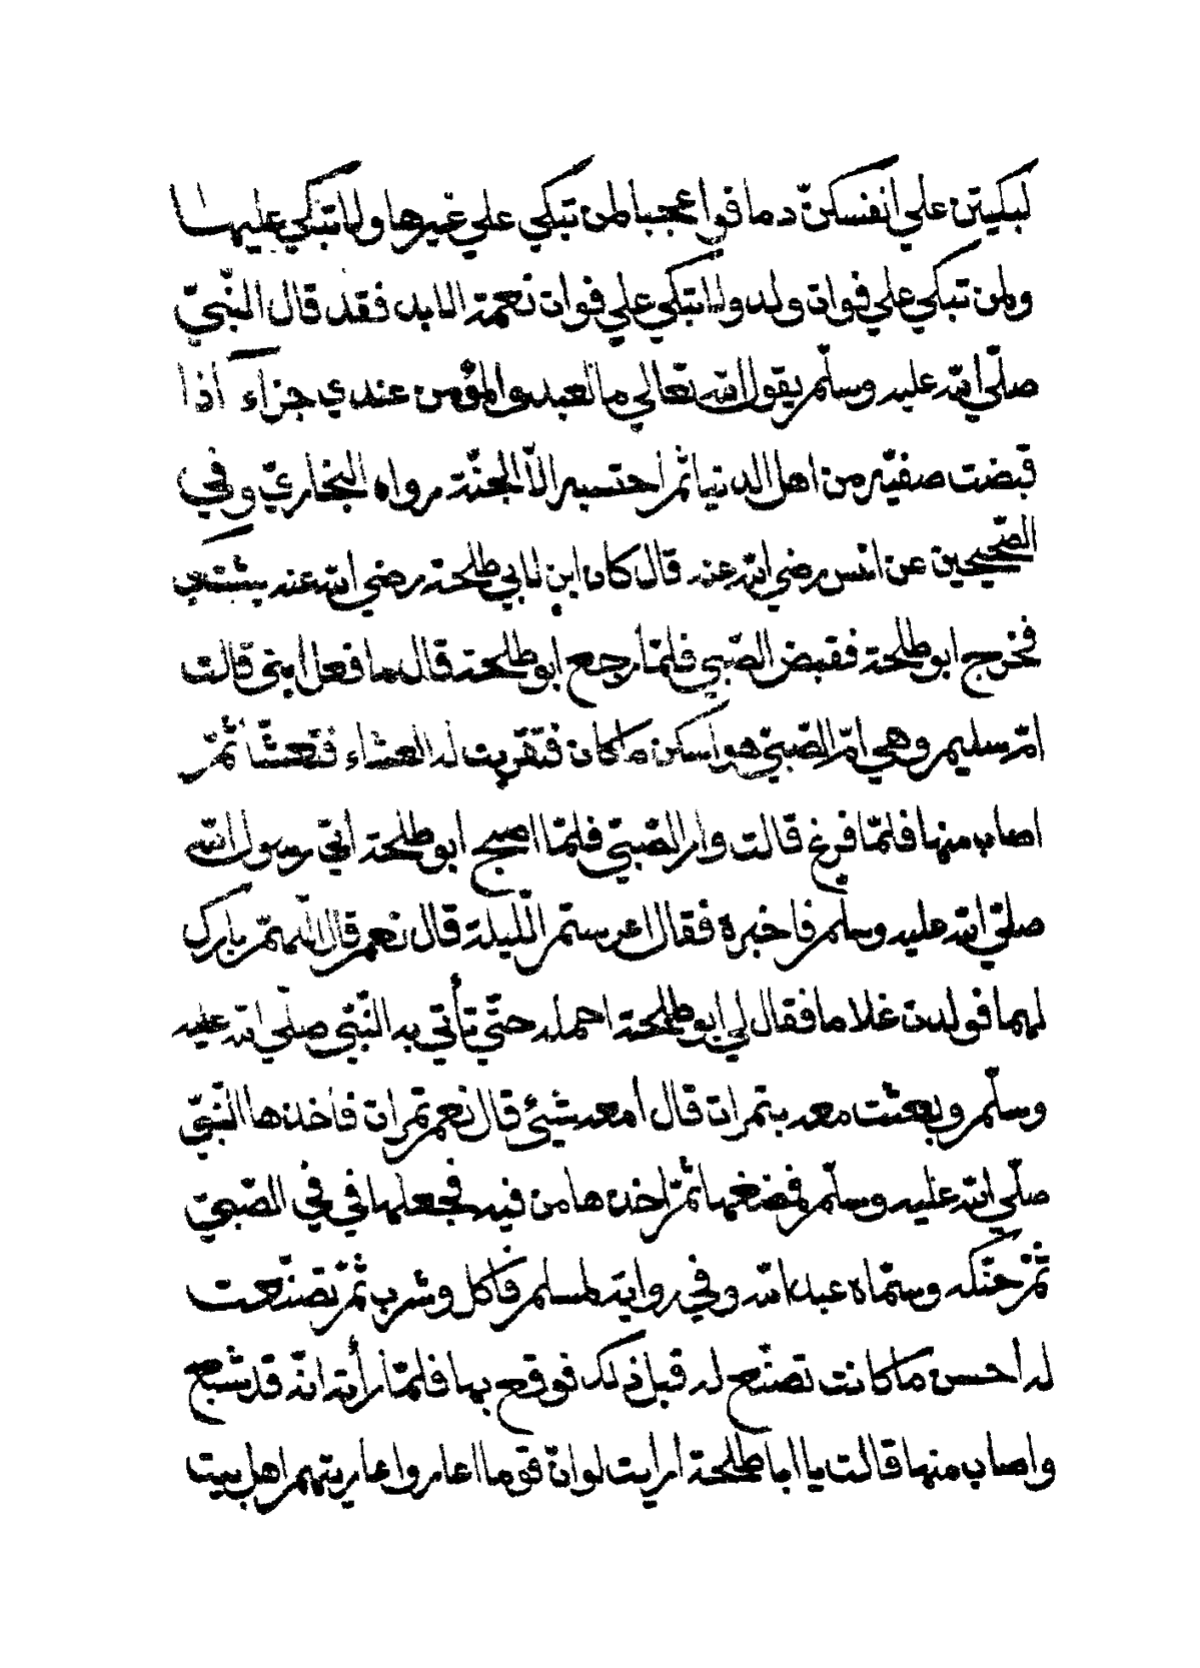 لبكيتن علي انفسكنّ دما فوا عجبا لمن تبكي علي غيرها ولا تبكي عليها
ولمن تبكي علي فوات ولد ولا تبكي علي فوات نعمة الابد فقد قال النّبيّ
صلّي الله عليه وسلّم يقول الله تعالي ما لعبدي المؤمن عندي جزاء اذا
قبضت صفيّه من اهل الدنيا ثم احتسبه الّا الجنّة رواه البخاريّ وفي
الصّحيحين عن انس رضي الله عنه قال كان ابن لابي طلحة رضي الله عنه يشتكي
فخرج ابو طلحة فقبض الصّبي فلمّا رجع ابو طلحة قال ما فعل ابني قالت
امّ سليم وهي امّ الصّبيّ هو اسكن ما كان فقربت له العشاء فتعشّا ثمّ
اصاب منها فلمّا فرغ قالت وار الصّبيّ فلمّا اصبح ابو طلحة اتي رسول الله
صلّي الله عليه وسلّم فاخبره فقال اعرستم اللّيلة قال نعم قال اللّهمّ بارك
لهما فولدت غلاما فقال لي ابو طلحة احمله حتّي تأتي به النّبيّ صلّي الله عليه
وسلّم وبعثت معه بتمرات قال أمعه شيئ قال نعم تمرات فأخذها النّبيّ
صلّي الله عليه وسلّم فمضغها ثمّ اخذها من فيه فجعلها في في الصّبيّ
ثمّ حنّكه وسمّاه عبد الله وفي رواية لمسلم فأكل وشرب ثمّ تصنّعت
له أحسن ما كانت تصنّع له قبل ذلك فوقع بها فلمّا رأته انّه قد شبع
واصاب منها قالت يا ابا طلحة ارايت لو انّ قوما اعاروا عاريتهم اهل بيت